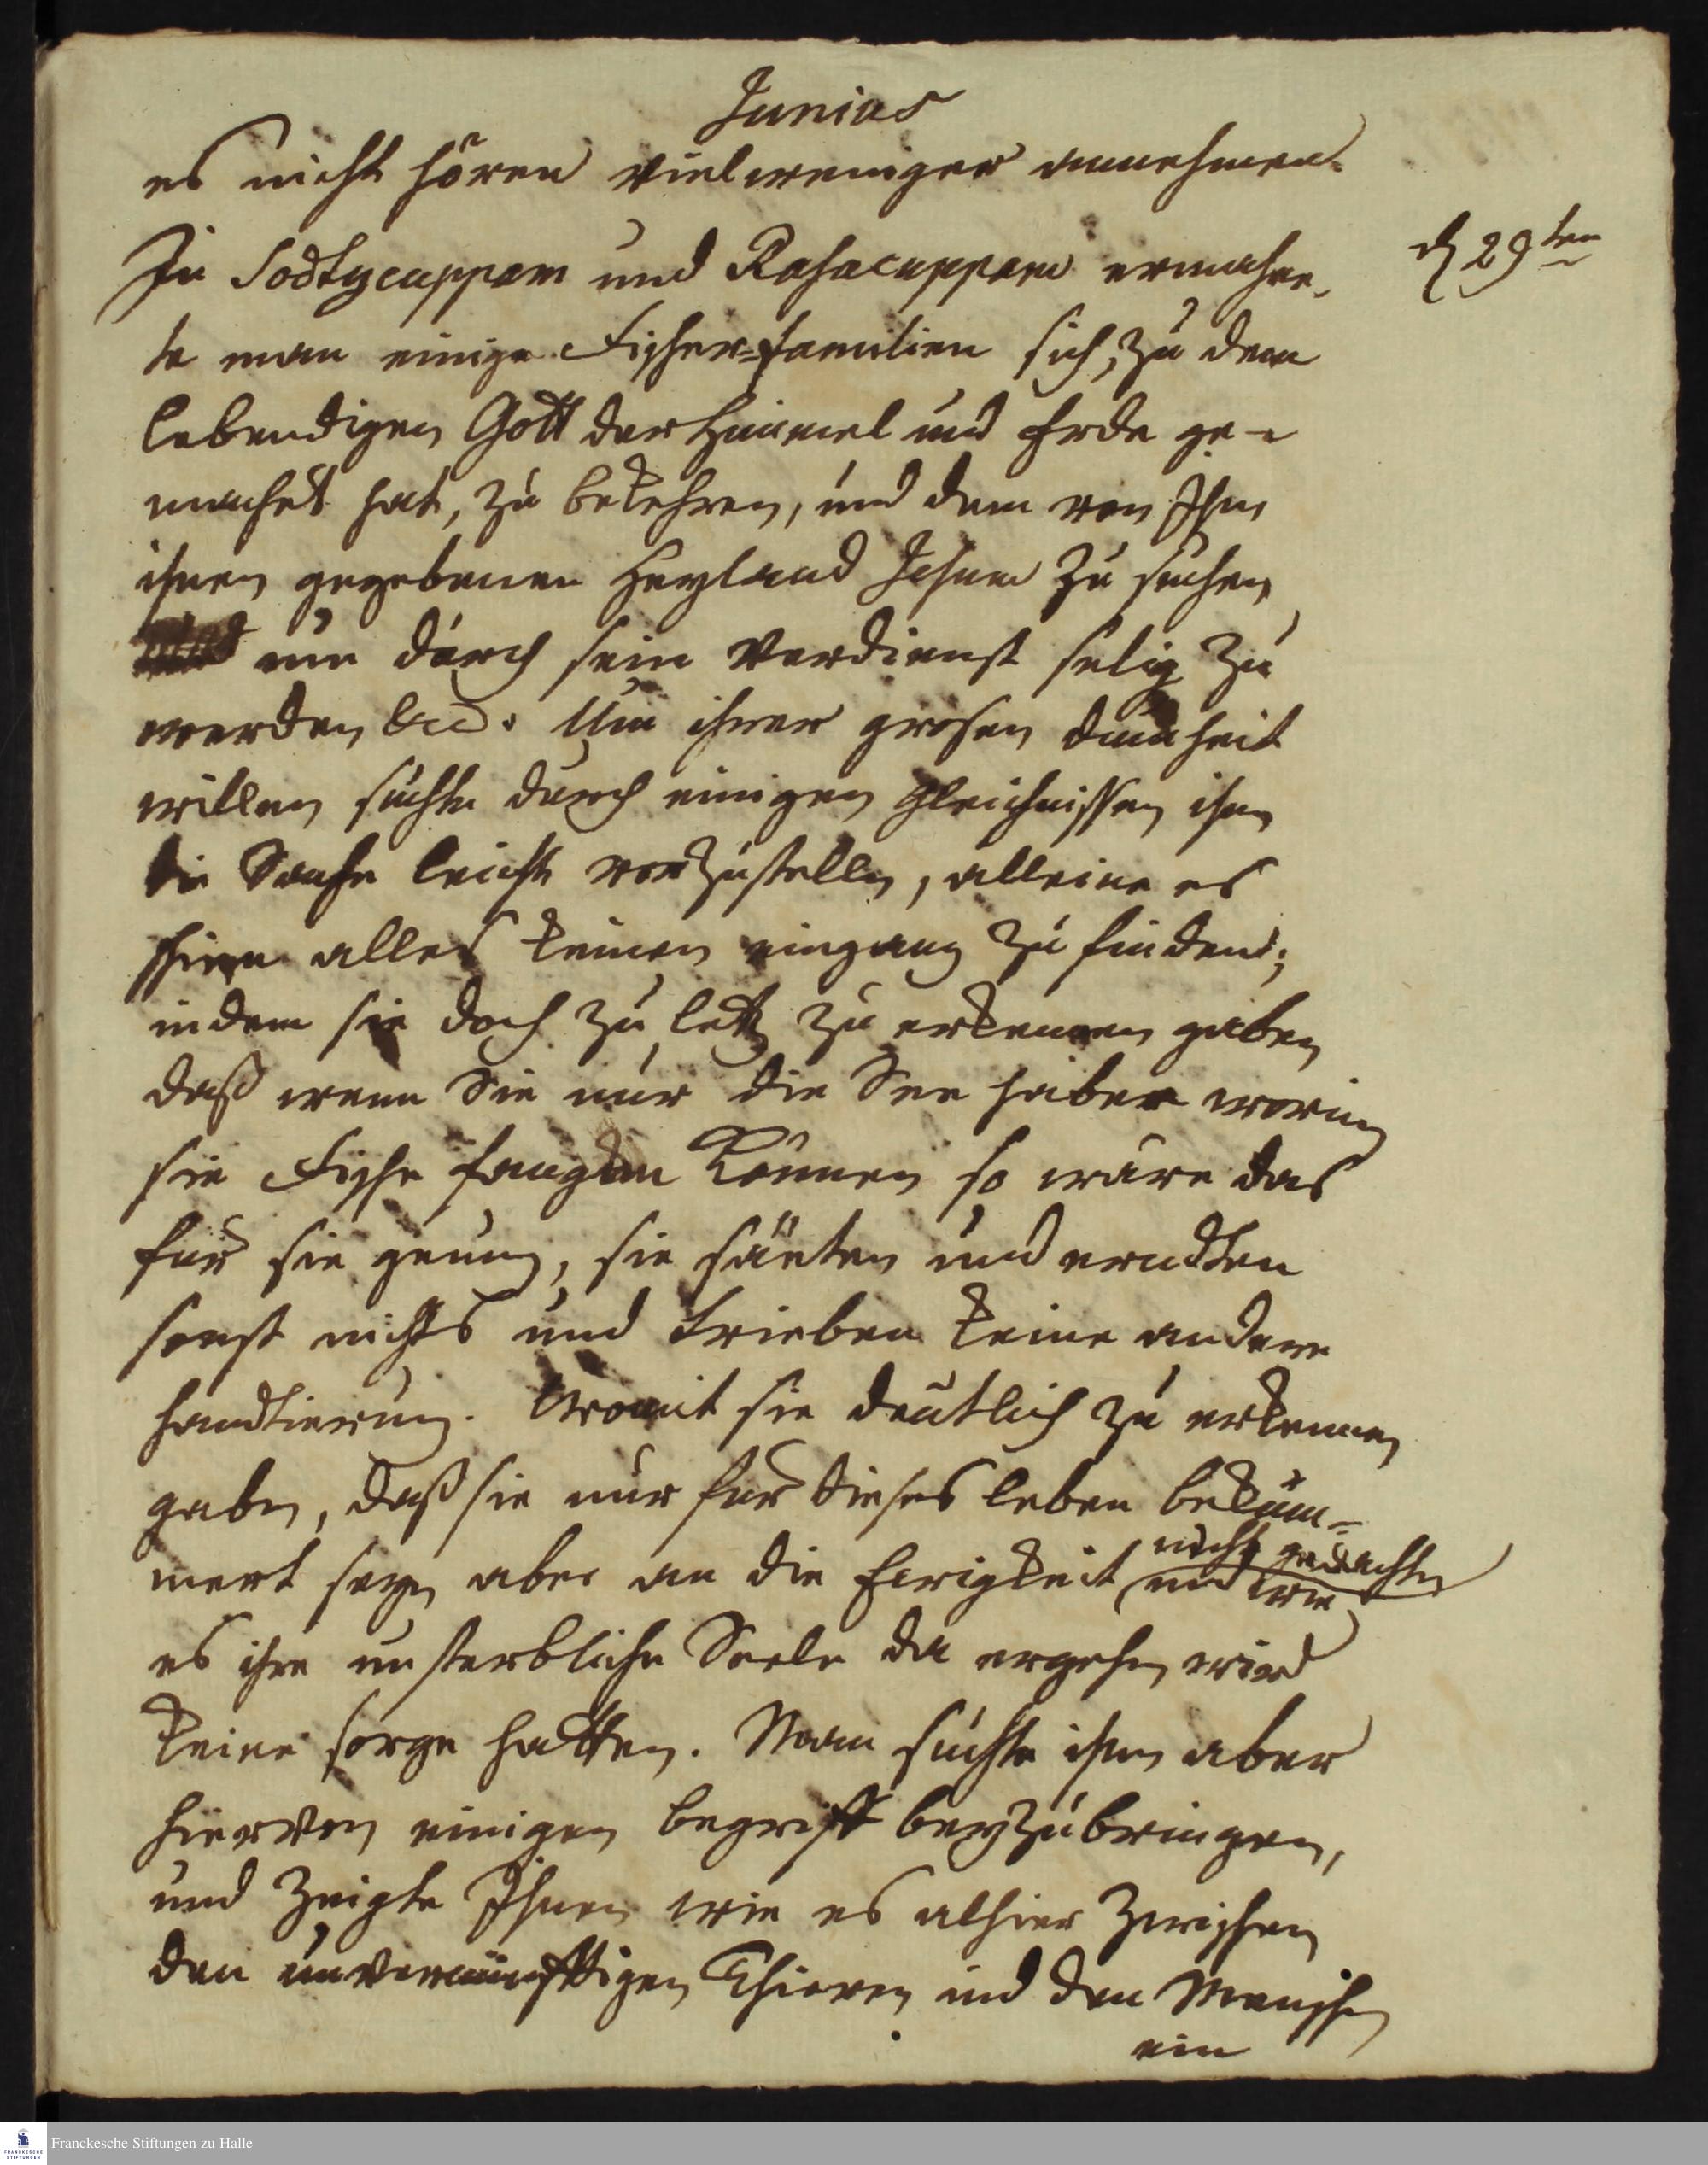 Junius
es nicht hören vielweniger annehmen.
In Sodtycuppam und Rasacuppam ermahne-
d 29ten
te man einige Fischer-familien sich, zu dem
lebendigen Gott der Himmel und Erde ge-
machet hat, zu bekehren, und dem von Ihm
ihnen gegebenen Heyland Jesum zu suchen
um durch sein Verdienst selig zu
werden &c. Um ihrer grosen dumheit
willen suchte durch einigen gleichnissen ihn
die Sache leicht vorzustellen, alleine es
schiene alles keinen eingang zu finden;
indem sie doch zu letz zu erkennen gaben
daß wenn Sie nur die See haben worin
sie Fische fangen können so wäre das
für sie genug, sie säeten und erndten
sonst nichts und trieben keine andere
handtierung. Womit sie deutlich zu erkennen
gaben, daß sie nur für dieses leben beküm-
mert seyn aber an die Ewigkeit nicht gedachten und wie
es ihre unsterbliche Seele da ergehen wird
keine sorge hatten. Man suchte ihn aber
hiervon einigen begriff beyzubringen,
und zeigte Ihnen wie es alhier zwischen
den unvernünfftigen Thieren und den Menschen
ein
Franckesche Stiftungen zu Halle